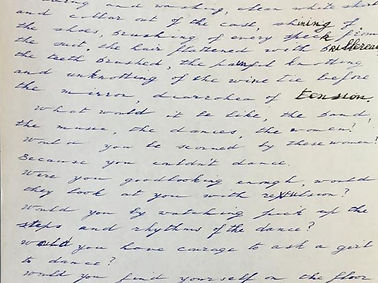 and washing, clean white shirt
and collar out of the case, shining of
the shoes, brushing of every speck from
the suit, the hair flattened with brilliantine
the teeth brushed, the painful knotting
and unknotting of the wine tie before
the mirror, diarrohea of tension.
What would it be like, the band,
the music, the dances, the women?
Would you be scorned by these women?
Because you couldn't dance.
Were you goodlooking enough, would
they look at you with revulsion?
Would you by watching pick up the
steps and rhythms of the dance?
Would you have courage to ask a girl
to dance?
Would you find yourself on the floor